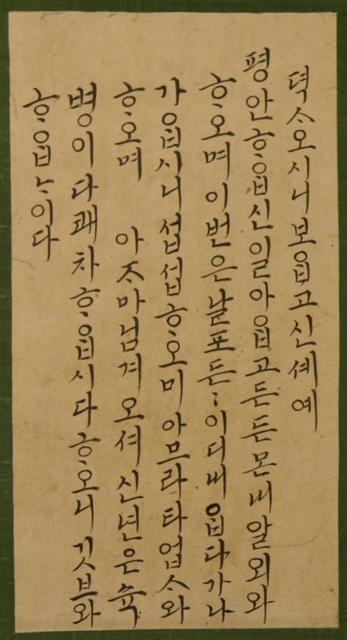 뎍ᄉᆞ오시니보ᄋᆞᆸ고신셰예
평안ᄒᆞᄋᆞᆸ신일아ᄋᆞᆸ고든든몬내알외와
ᄒᆞ오며이번은날포든〻이디내ᄋᆞᆸ다가나
가ᄋᆞᆸ시니섭섭ᄒᆞ오미아므라타업ᄉᆞ와
ᄒᆞ오며 아ᄌᆞ마님겨오셔신년은슉
병이다쾌차ᄒᆞᄋᆞᆸ시다ᄒᆞ오니깃브와
ᄒᆞᄋᆞᆸᄂᆞ이다